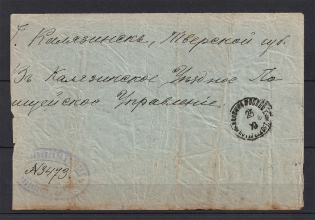 Г. Калязинскъ, Тверской губ.
Въ Калязинское Уѣздное По
лицейское Управленіе.
25
№3473